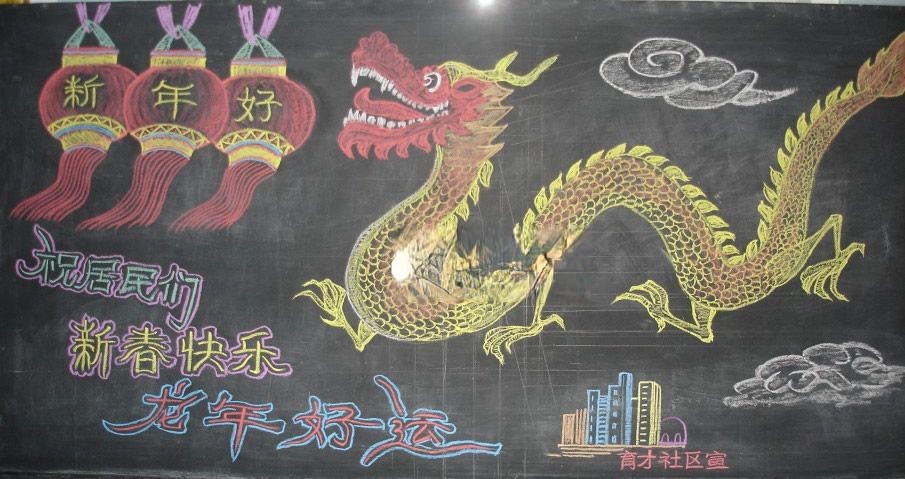 新年好
祝居民们
新春快乐
龙年好运
育才社区宣